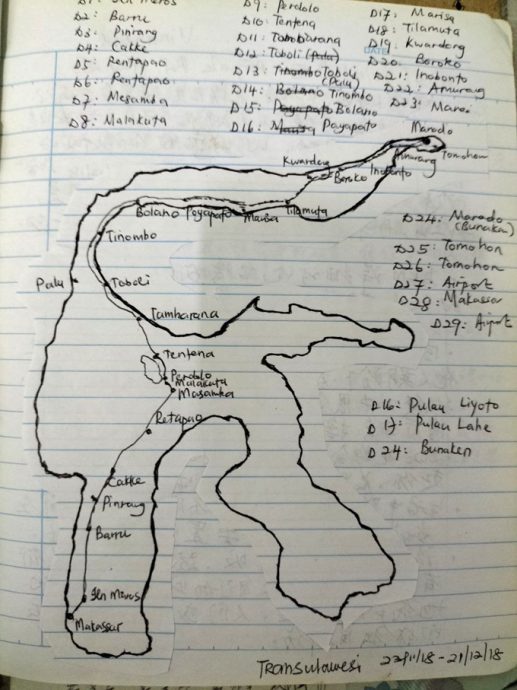 D2: Barru
D3: Pinrang
D4: Cakke
D5: Rentapao
D6: Rentapao
D7: Mesamba
D8: Malakuta
D9: Perdolo
D10: Tentena
D11: Tambarana
D12: Toboli (Palu)
D13: Tinombo Toboli
(Palu)
D14: Bolano Tinombo
D15: Payapato Bolano
D16: Marisa Payapato
D17: Marisa
D18: Tilamuta
DATE
D19: Kwardang
D20: Boroko
D21: Inobonto
D22: Amurang
Manado
Kwardang
Boroko
Inobonto
Amurang
Tomohon
Bolano
Payapato
Marisa
Tilamuta
Tinombo
Palu
Toboli
Tambarana
Tentena
Perdolo
Malakuta
Masamba
Retapao
Cakke
Pinrang
Barru
Jen Meros
Makassar
D24: Manado
(Bunaken)
D25: Tomohon
D26: Tomohon
D27: Airport
D28: Makassar
D29: Airport
D16: Pulau Liyoto
D17: Pulau Lahe
D24: Bunaken
Transulawesi 22/11/18 - 21/12/18